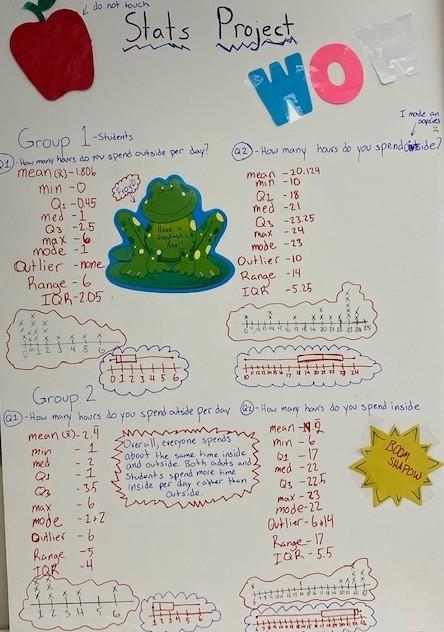 do not touch
Stats Project
WOW
I made an
oopsies
Group 1 - Students
Q1 - How many hours do you spend outside per day?
mean (x̄) - 1.806
min - 0
Q1 - 0.45
med - 1
Q3 - 2.5
max - 6
mode - 1
Outlier - none
Range - 6
IQR - 2.05
Have a
day!!
0 1 2 3 4 5 6
Q2 - How many hours do you spend inside?
mean - 20.124
min - 10
Q1 - 18
med - 21
Q3 - 23.25
max - 24
mode - 23
Outlier - 10
Range - 14
IQR - 5.25
Group 2
Q1 - How many hours do you spend outside per day
mean (x̄) - 2.4
min - 1
med - 2
Q1 - 1
Q3 - 3.5
max - 6
mode - 1+2
Outlier - 6
Range - 5
IQR - 4
1 2 3 4 5 6
Overall, everyone spends
about the same time inside
and outside. Both adults and
Students spend more time
inside per day rather than
outside.
Q2 - How many hours do you spend inside
mean -
min - 6
Q1 - 17
med - 22
Q3 - 22.5
max - 23
mode - 22
Outlier - 6+14
Range - 17
IQR - 5.5
BOOM
SHAPOW